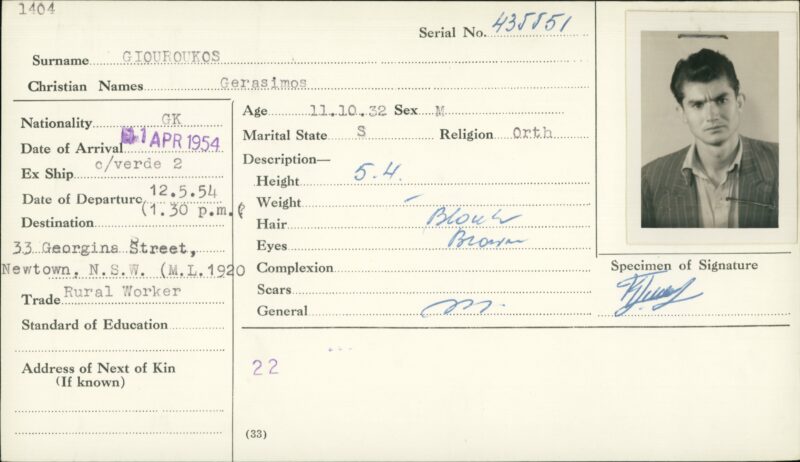 1404
Serial No. 435551
Surname GIOUROUKOS
Christian Names Gerasimos
Nationality GK
Date of Arrival 1 APR 1954
Ex Ship c/verde 2
Date of Departure 12.5.54
(1.30 p.m.
Destination
33 Georgina Street,
Newtown, N.S.W. (M.L.1920
Trade Rural Worker
Standard of Education
Address of Next of Kin
(If known)
Age 11.10.32 Sex M
Marital State S Religion Orth
Description—
Height 5.4.
Weight -
Hair Black
Eyes Brown
Complexion
Scars
General m.
22
(33)
Specimen of Signature